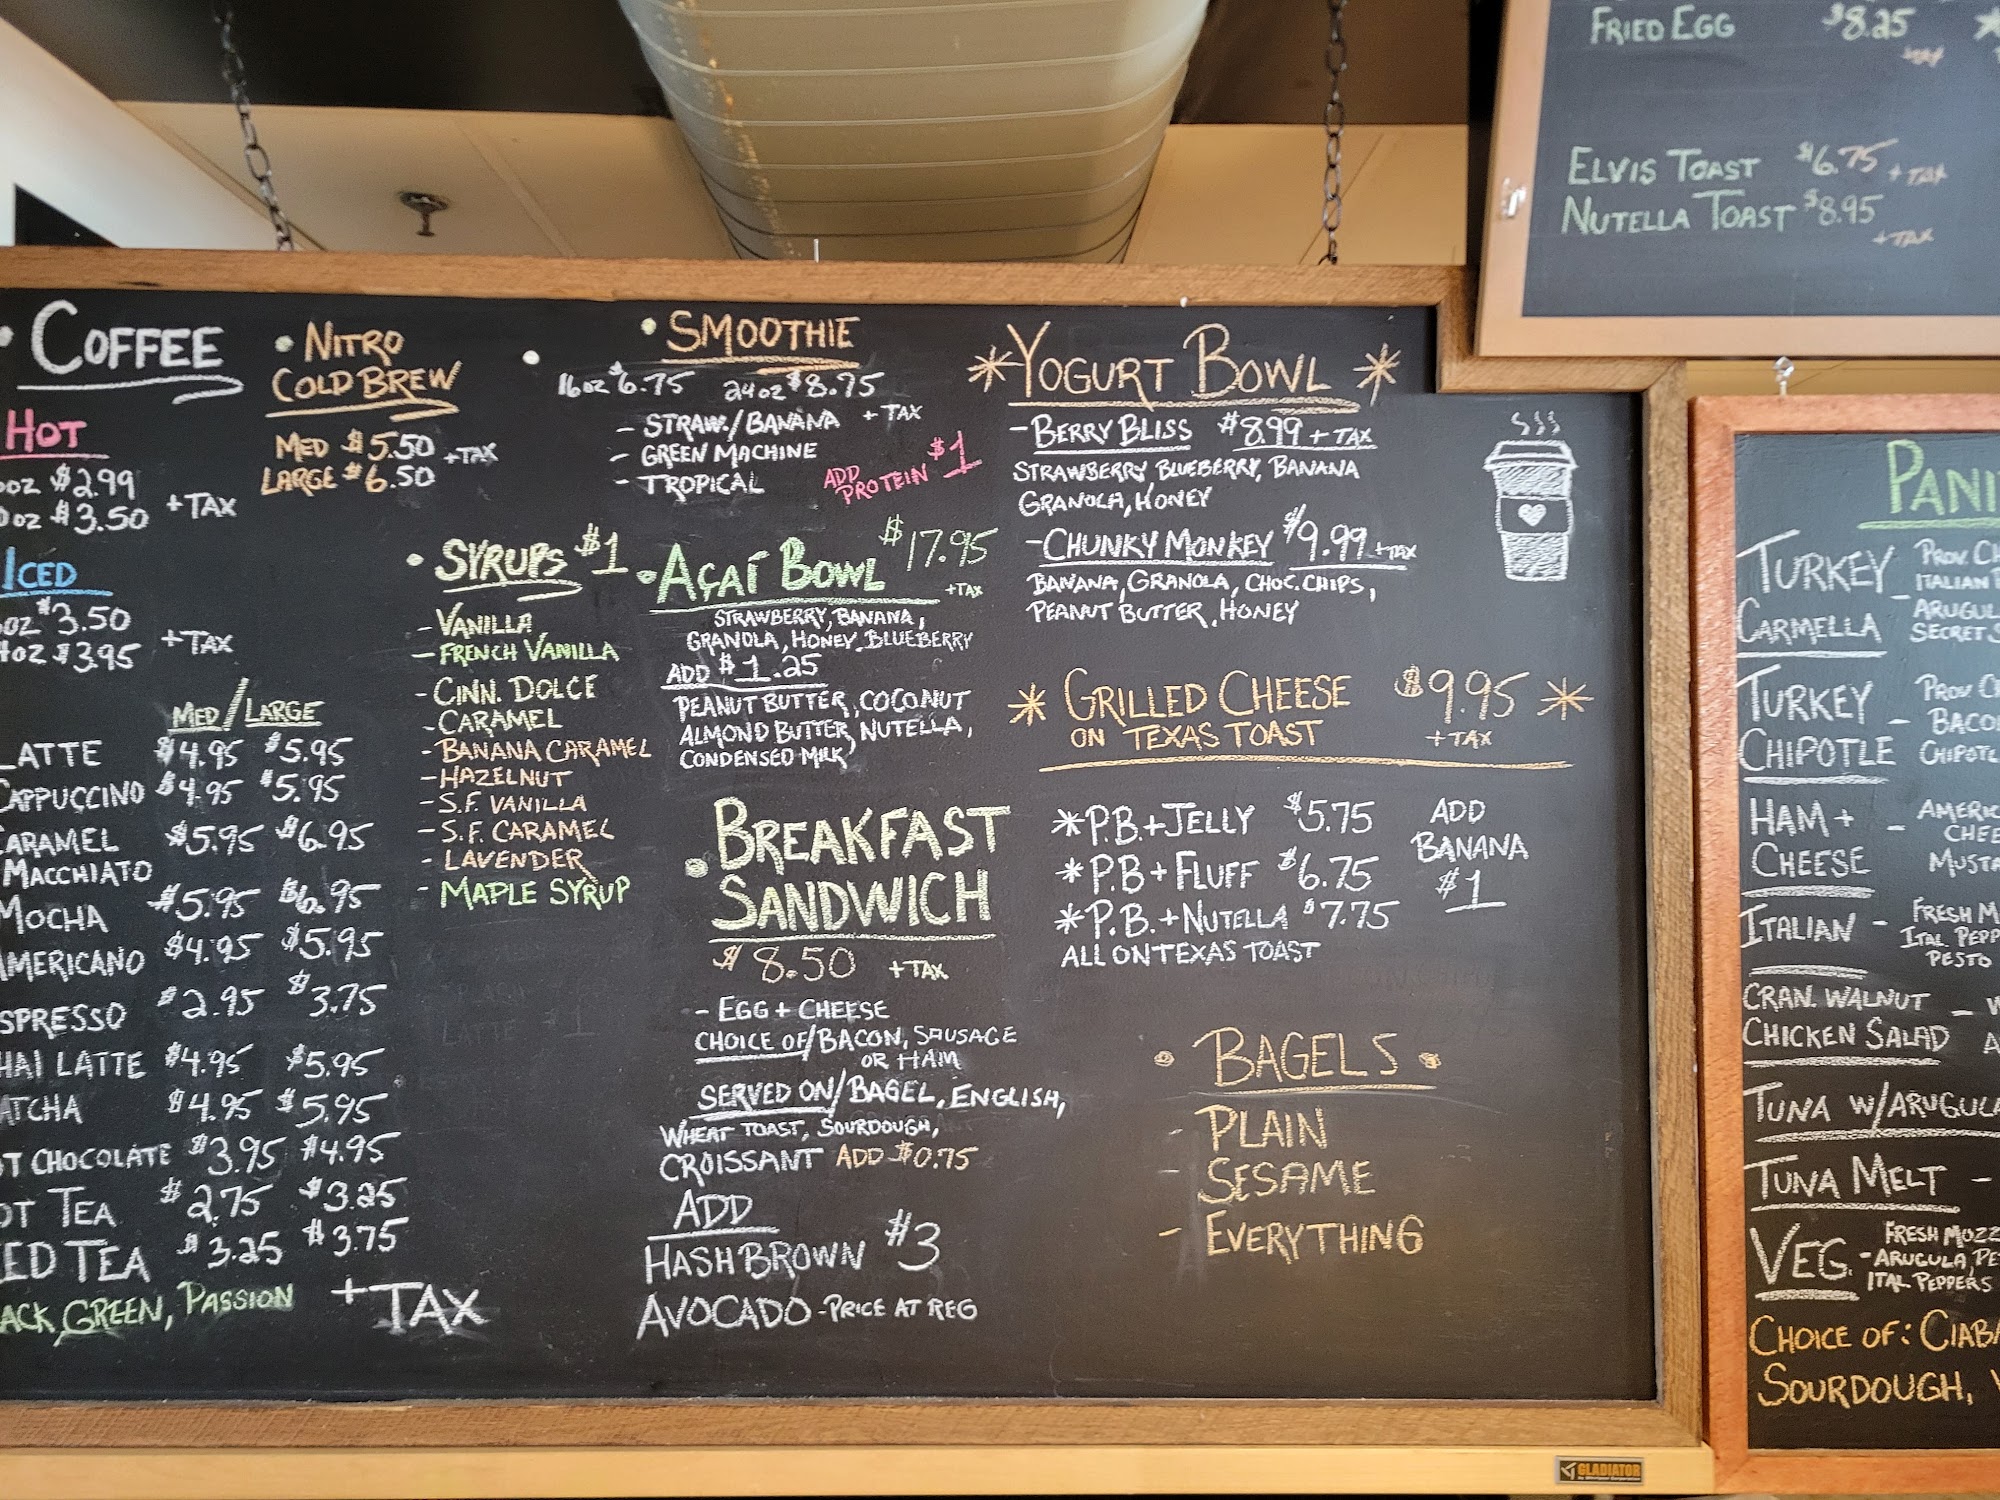 FRIED EGG $8.25
+TAX
ELVIS TOAST $6.75 + TAX
NUTELLA TOAST $8.95
+TAX
• COFFEE
HOT
$2.99
$3.50 +TAX
ICED
$3.50
$3.95 +TAX
MED/LARGE
LATTE $4.95 $5.95
CAPPUCCINO $4.95 $5.95
CARAMEL $5.95 $6.95
MACCHIATO
MOCHA $5.95 $6.95
AMERICANO $4.95 $5.95
SPRESSO $2.95 $3.75
HAI LATTE $4.95 $5.95
ATCHA $4.95 $5.95
OT CHOCOLATE $3.95 $4.95
OT TEA $2.75 $3.25
ED TEA $3.25 $3.75
ACK, GREEN, PASSION +TAX
• NITRO
COLD BREW
MED $5.50 +TAX
LARGE $6.50
• SYRUPS $1
- VANILLA
- FRENCH VANILLA
- CINN. DOLCE
- CARAMEL
- BANANA CARAMEL
- HAZELNUT
- S.F. VANILLA
- S.F. CARAMEL
- LAVENDER
- MAPLE SYRUP
• SMOOTHIE
16oz $6.75 24oz $8.75
- STRAW./BANANA + TAX
- GREEN MACHINE
- TROPICAL
ADD
PROTEIN $1
• AÇAÍ BOWL $17.95
+TAX
STRAWBERRY, BANANA,
GRANOLA, HONEY, BLUEBERRY
ADD $1.25
PEANUT BUTTER, COCONUT
ALMOND BUTTER, NUTELLA,
CONDENSED MILK
• BREAKFAST
SANDWICH
$8.50 +TAX
- EGG + CHEESE
CHOICE OF/BACON, SAUSAGE
OR HAM
SERVED ON/BAGEL, ENGLISH,
WHEAT TOAST, SOURDOUGH,
CROISSANT ADD $0.75
ADD
HASHBROWN $3
AVOCADO - PRICE AT REG
* YOGURT BOWL *
- BERRY BLISS $8.99 + TAX
STRAWBERRY, BLUEBERRY, BANANA
GRANOLA, HONEY
- CHUNKY MONKEY $9.99 +TAX
BANANA, GRANOLA, CHOC. CHIPS,
PEANUT BUTTER, HONEY
* GRILLED CHEESE $9.95 *
ON TEXAS TOAST +TAX
* P.B.+JELLY $5.75
* P.B+FLUFF $6.75
* P.B.+NUTELLA $7.75
ALL ON TEXAS TOAST
ADD
BANANA
$1
• BAGELS •
- PLAIN
- SESAME
- EVERYTHING
PANI
TURKEY - PROV. CH
ITALIAN
CARMELLA ARUGUL
SECRET S
TURKEY - PROV. CH
BACO
CHIPOTLE CHIPOTL
HAM + - AMERIC
CHEE
CHEESE MUSTA
ITALIAN - FRESH M
ITAL. PEPP
PESTO
CRAN. WALNUT -
CHICKEN SALAD
TUNA W/ARUGULA
TUNA MELT -
VEG. FRESH MOZZ
- ARUGULA, PE
ITAL PEPPERS
CHOICE OF: CIABA
SOURDOUGH,
GLADIATOR